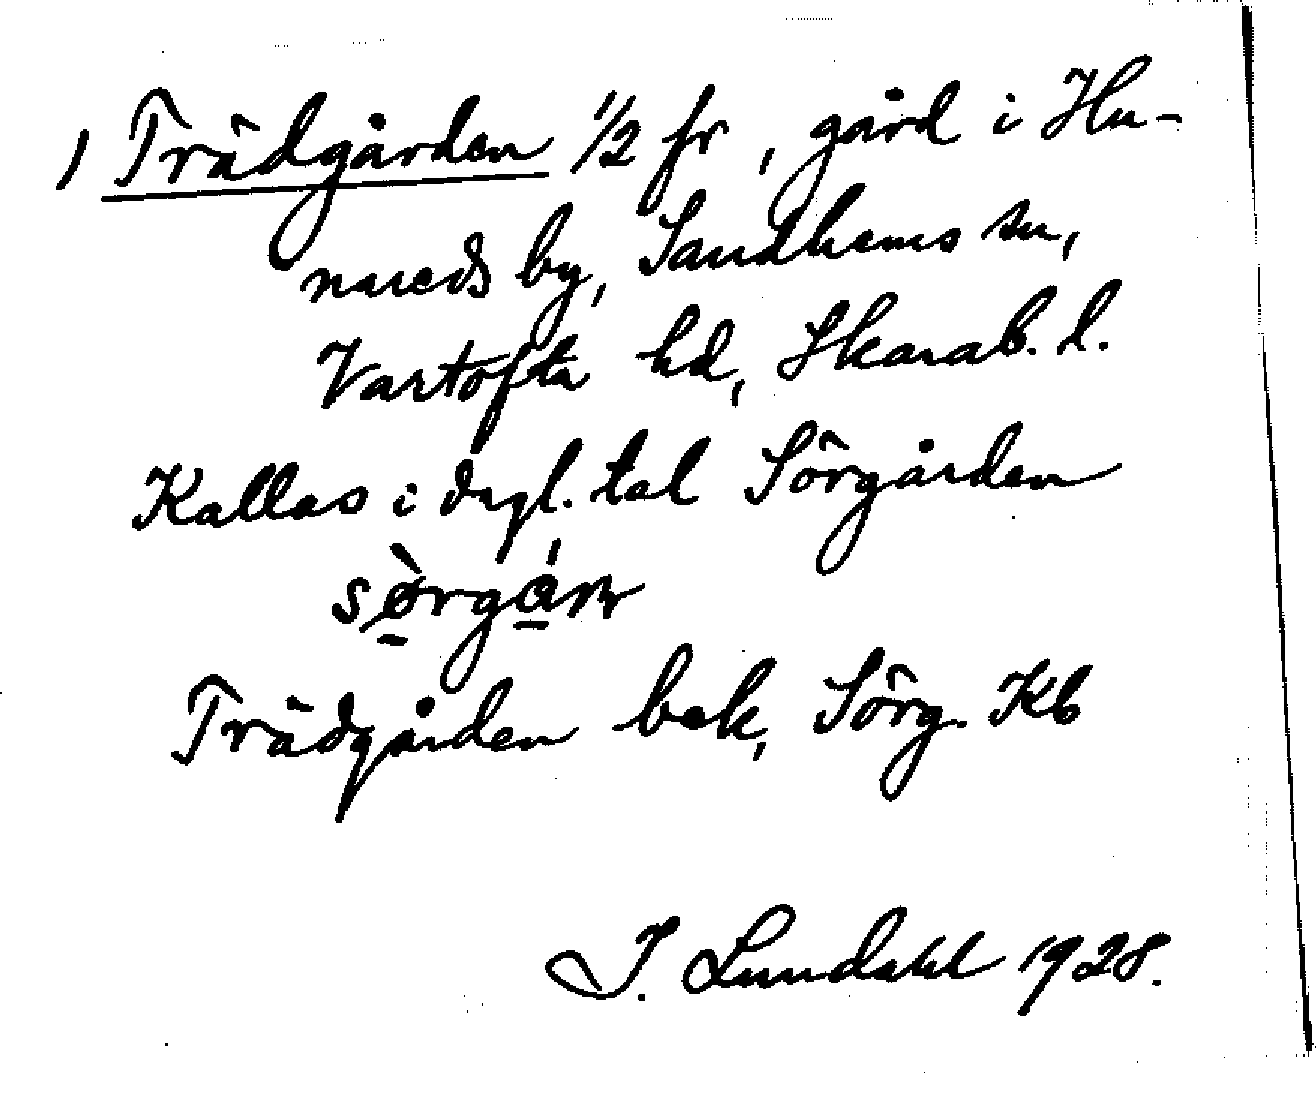 1) Trädgården 1/2 fr, gård i Hu-
nareds by, Sandhems sn,
Vartofta hd, Skarab. l.
Kallas i dagl. tal Sörgården
sø̀rgán
Trädgården bek, Sörg. Kb
I. Lundahl 1928.